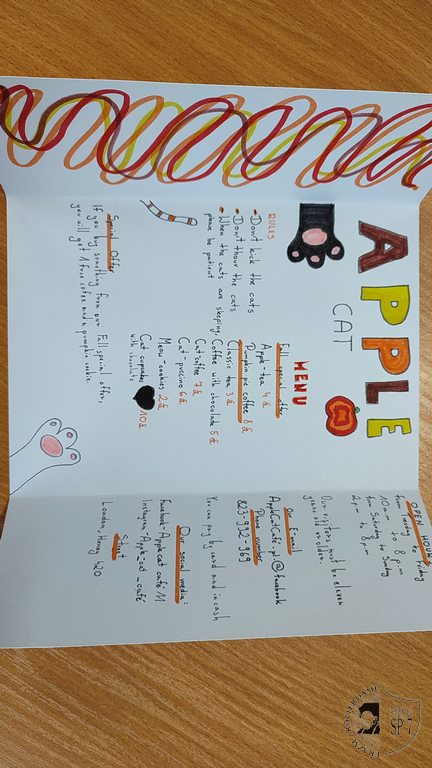 APPLE
CAT
RULES
• Don't kick the cats
• Don't thour the cats
• When the cats are sleeping,
please be patient
MENU
Fall special offer
Apple-tea 4£
Pumpkin pie coffee 8£
Classic tea 3£
Coffee with chocolade 5£
Cat'coffee 7£
Cat-puccino 6£
Meow-cookies 2£
Cat cupcakes 10£
with chocolate
Special Offer
If you buy something from our Fall special offer,
you will get 1 free cofee and a pumpkin cookie.
OPEN HOURS
from Tuesday to Friday
10 a.m. to 8 p.m.
from Saturday to Sunday
2 p.m. to 8 p.m.
Our visitors must be eleven
years old or older.
Our E-mail
AppleCatCafé.pl@facebook
Phone number
823-992-969
You can pay by card and in cash
Our social media:
Facebook-Applecat café 11
Instagram-Apple_cat_café
Street
London, Honey 420
SP 7